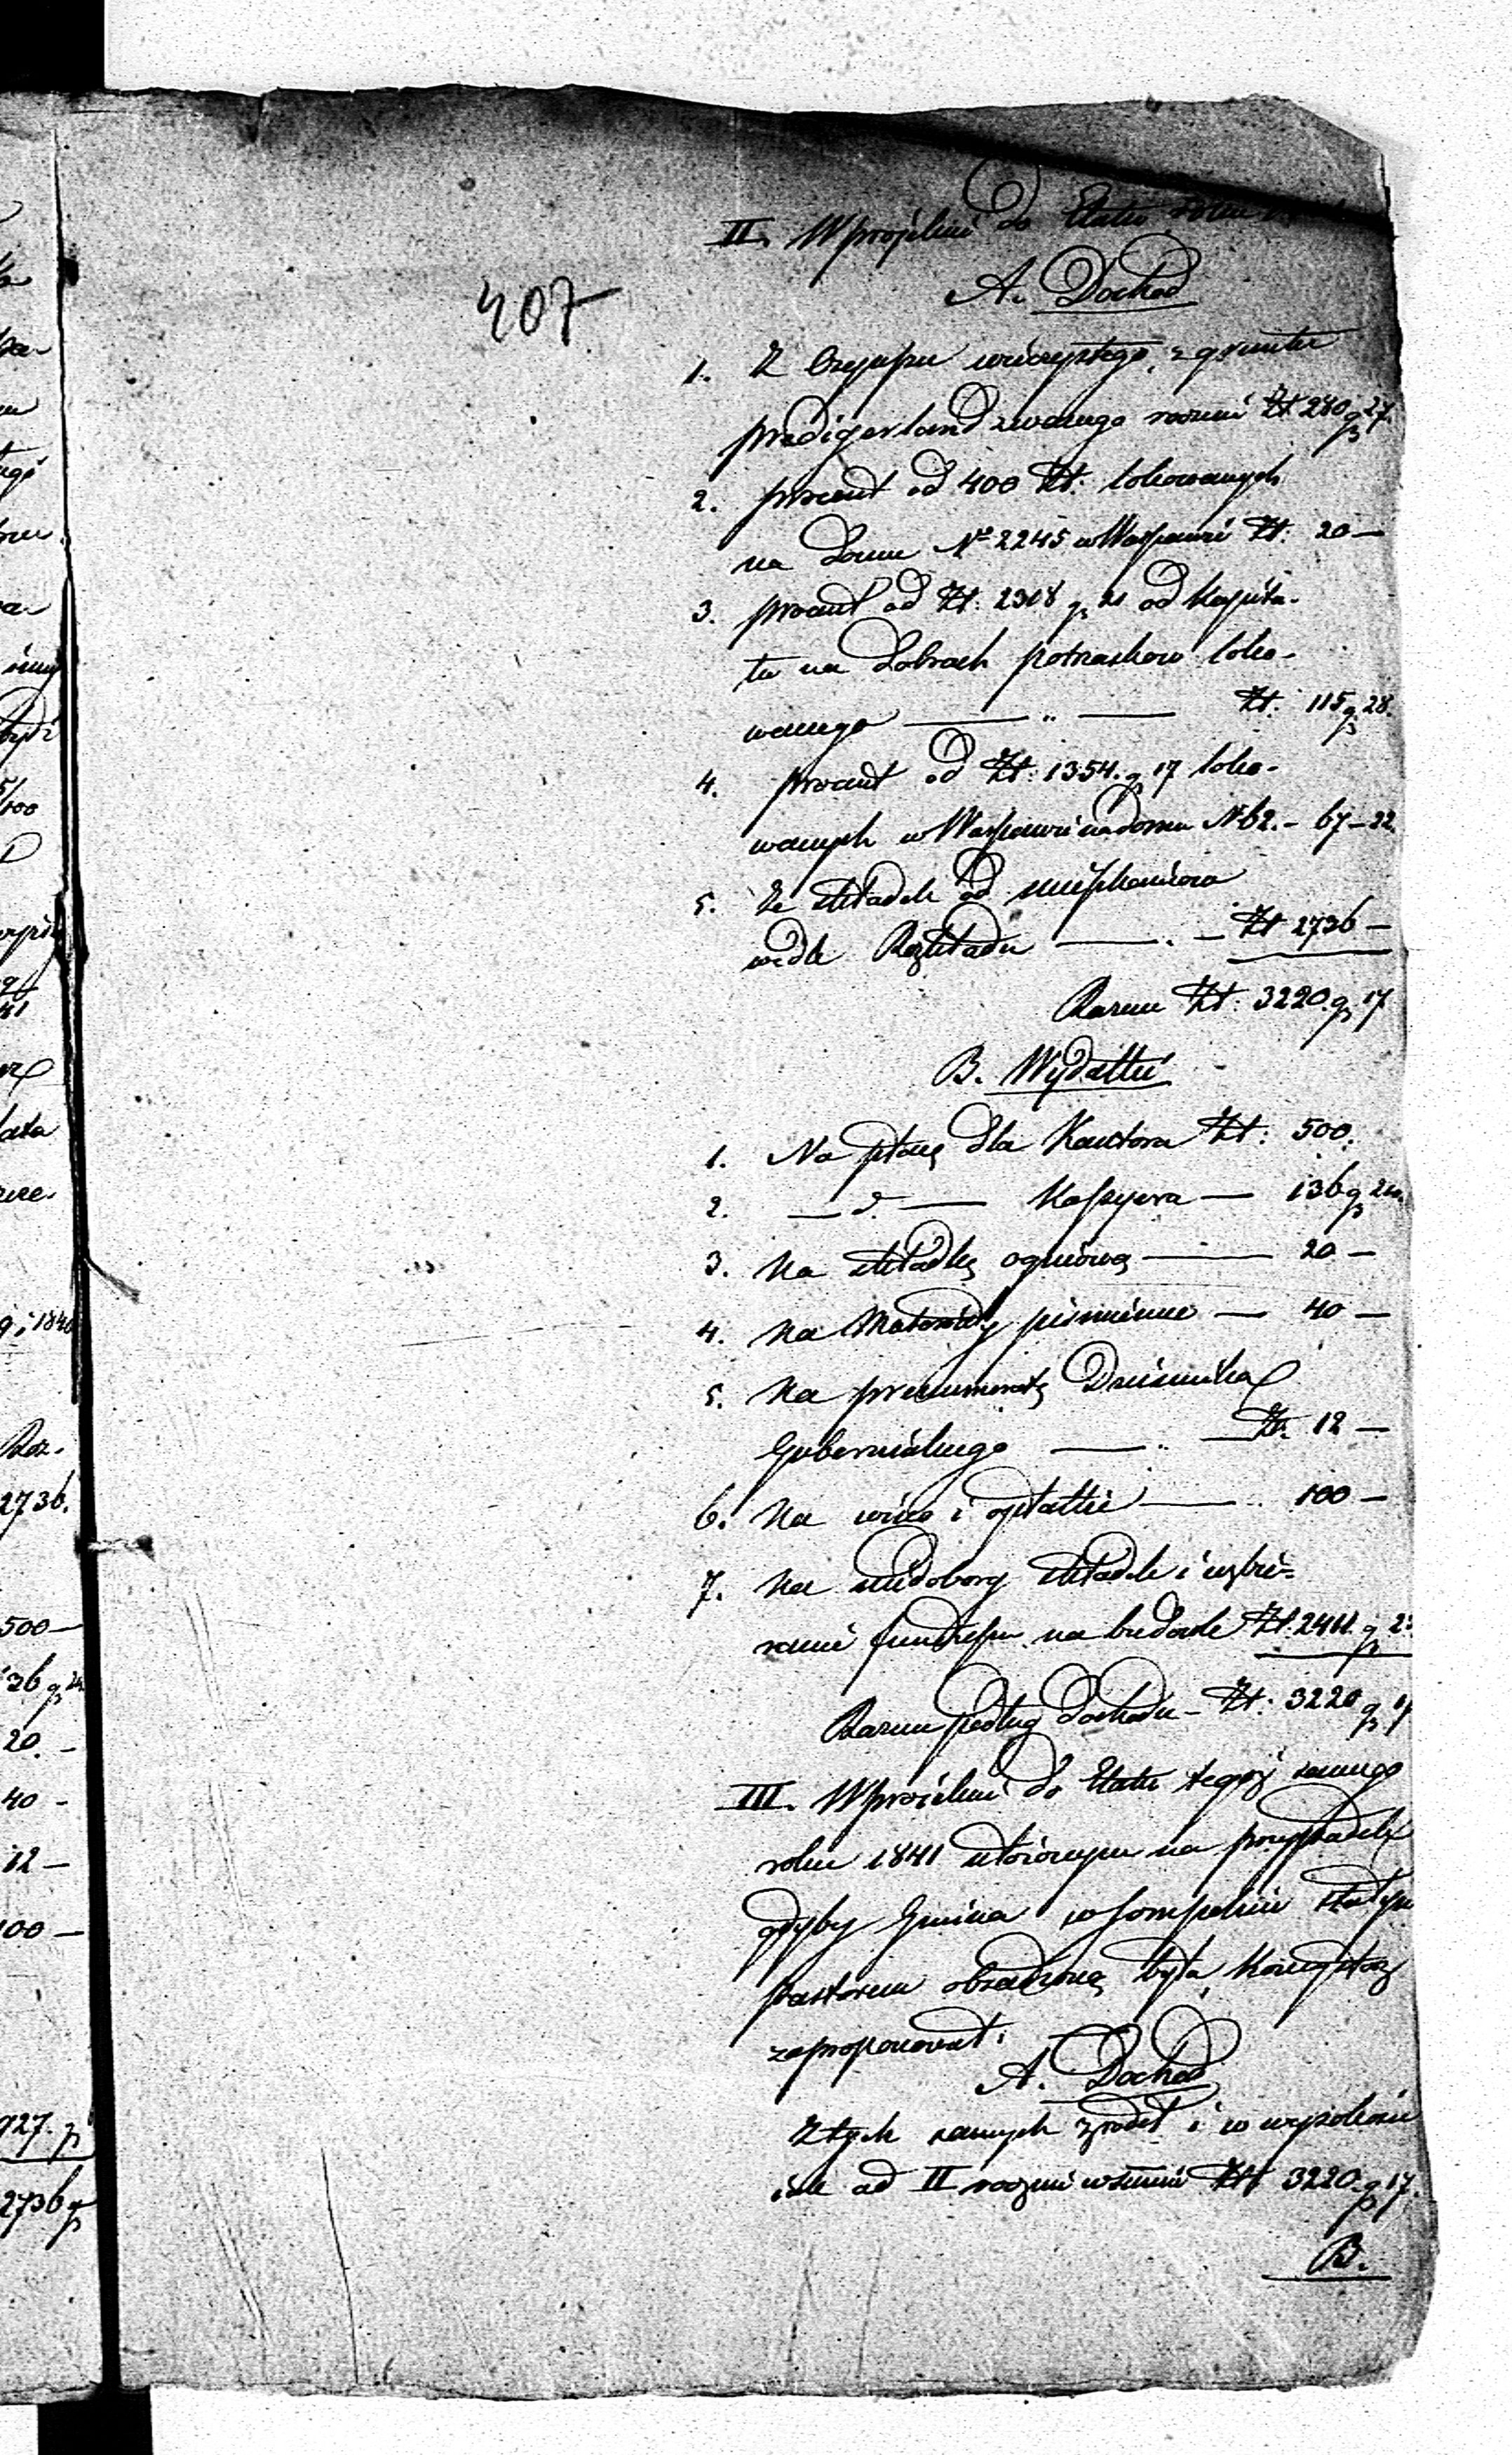 407
II. W projekcie do Etatu roku
A. Dochod
1. Z Czynszu wieczystego, z gruntu
predigerland zwanego rocznie Zł 280 gr 27.
2. procent od 400 Zł: lokowanych
na domu No 2245 w Warszawie Zł: 20 —
3. procent od Zł: 2318 gr 21 od Kapita-
łu na dobrach potrzaskow loko-
wanego — „ — Zł: 115 gr 28.
4. procent od Zł: 1354. gr 17 loko-
wanych w Warszawie na domu N 62. — 67 — 22.
5. Ze składek od mieszkańców
wedle Rozkładu — . — Zł 2736 —
Razem Zł: 3220. gr 17
B. Wydatki
1. Na płacę dla Kantora Zł: 500.
2. — d. — Kassyera — 136 gr 24.
3. Na składkę ogniową — 20 —
4. Na Materiały piśmienne — 40 —
5. Na prenumeratę Dziennika
Gubernialnego — „ — Zł. 12 —
6. Na wino i opłatki — 100 —
7. Na niedobory składek i uzbie-
ranie funduszu na budowle Zł. 2411. gr 2
Razem podług dochodu — Zł: 3220 gr 17
III. W projekcie do Etatu tegoż samego
roku 1841 ułożonym na przypadek
gdyby Gmina w Sompolnie stałym
Pastorem obsadzoną była, Konsystorz
zaproponował:
A. Dochod
Z tych samych źrodeł i w wysokości
jak ad II rocznie w summie Zł 3220. gr 17.
B.
2736.
500 —
36 gr 24
20. —
40 —
12 —
00 —
927. gr
2736 gr